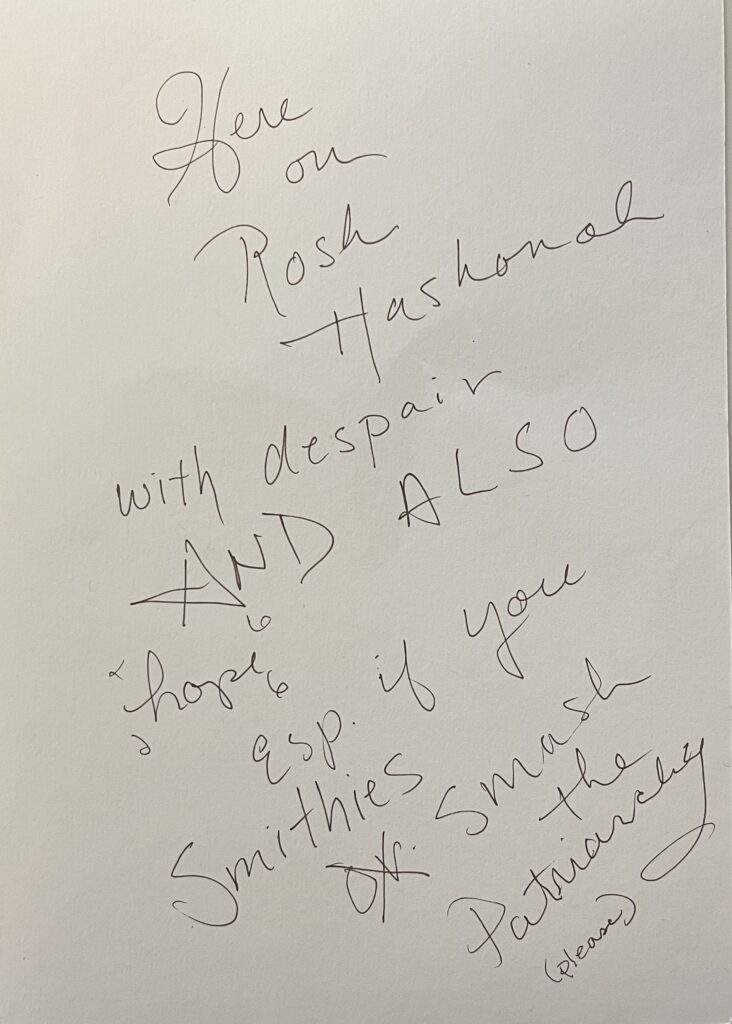 Here
on
Rosh
Hashonah
with despair
AND ALSO
hope
esp. if you
Smithies
smash
the
Patriarchy
(please)